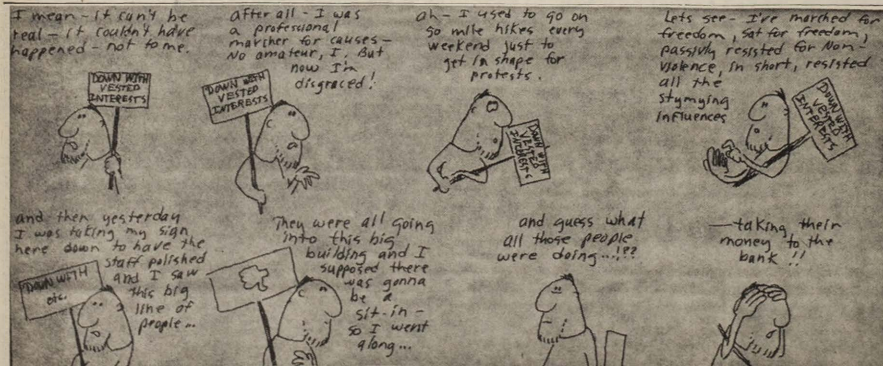 I mean - it can't be
real - it couldn't have
happened - not to me.
DOWN WITH
VESTED
INTERESTS
after all - I was
a professional
marcher for causes -
No amateur, I. But
now I'm
disgraced!
DOWN WITH
VESTED
INTERESTS
ah - I used to go on
50 mile hikes every
weekend just to
get in shape for
protests.
DOWN WITH
VESTED
INTERESTS
Lets see - I've marched for
freedom, sat for freedom,
passivly resisted for Non-
violence, in short, resisted
all the
stymying
influences
DOWN WITH
VESTED
INTERESTS
and then yesterday
I was taking my sign
here down to have the
staff polished
and I saw
this big
line of
people...
DOWN WITH
etc.
They were all going
into this big
building and I
supposed there
was gonna
be a
sit-in -
so I went
along...
and guess what
all those people
were doing...!??
—taking their
money to the
bank!!